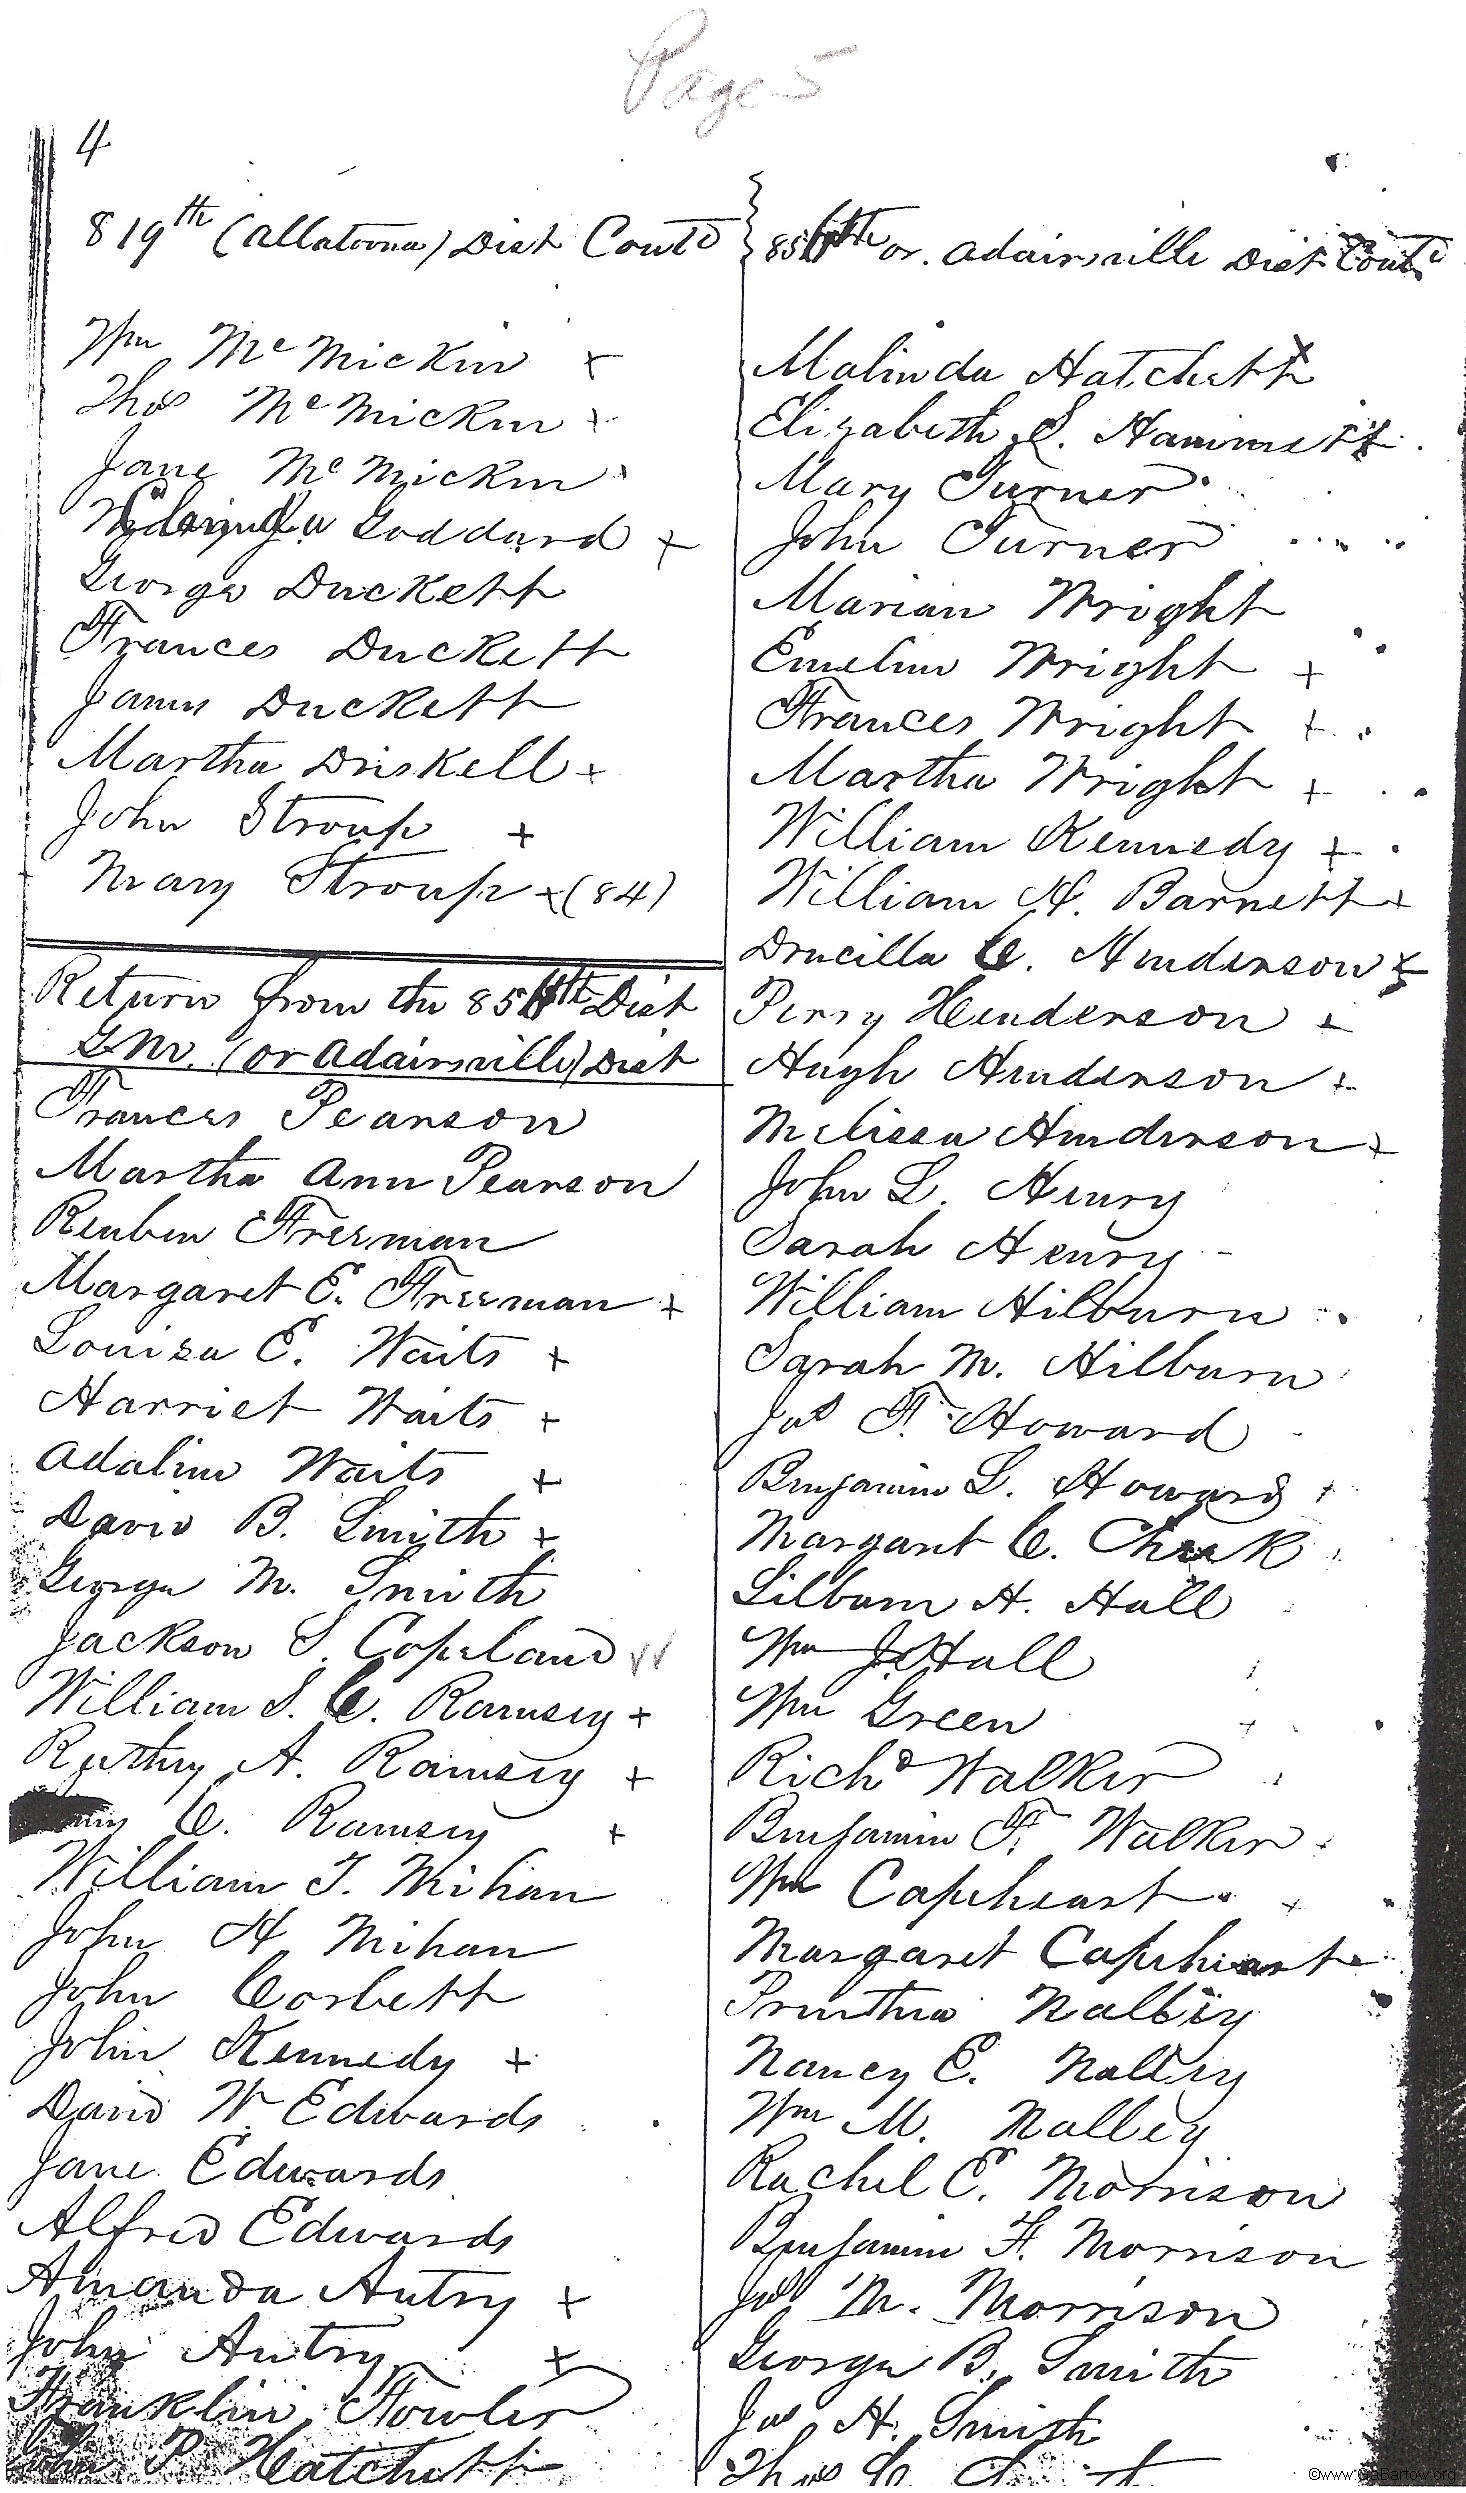 Page 5
4
819th (Allatoona) Dist Contd
Wm McMickin x
Thos McMickin x
Jane McMickin
Goddard x
George Duckett
Frances Duckett
James Duckett
Martha Driskell x
John Stroup x
Mary Stroup x (84)
Return from the 856th Dist
G.M. (or Adairsville) Dist
Frances Pearson
Martha Ann Pearson
Reuben Freeman
Margaret E. Freeman x
Louiza E. Waits x
Harriet Waits x
Adaline Waits x
David B. Smith x
George M. Smith
Jackson S. Copeland vv
William S. C. Ramsey x
Ruthy A. Ramsey x
C. Ramsey x
William T. Mihan
John H Mihan
John Corbett
John Kennedy x
David W Edwards
Jane Edwards
Alfred Edwards
Amanda Autry x
John Autry x
Franklin Fowler
John P. Hatchett
856th or Adairsville Dist Contd
Malinda Hatchett x
Elizabeth S. Hammett x
Mary Turner
John Turner
Marian Wright
Emeline Wright x
Frances Wright x
Martha Wright x
William Kennedy x
William H. Barnett x
Drucilla C. Henderson x
Perry Henderson x
Hugh Henderson x
Melissa Henderson x
John L. Henry
Sarah Henry
William Hilburn
Sarah M. Hilburn
Jas F. Howard
Benjamin L. Howard
Margaret C. Cheek
Lilburn H. Hall
Wm J. Hall
Wm Green
Richd Walker
Benjamin F. Walker
Wm Capeheart x
Margaret Capeheart
Nalley
Nancy E. Nalley
Wm M. Nalley
Rachel E. Morrison
Benjamin F. Morrison
Jas M. Morrison
George B. Smith
Jas H. Smith
Thos C.
©www.GaBartow.org